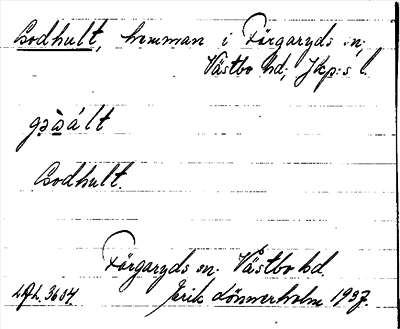 Bodhult, hemman i Färgaryds sn;
Västbo hd; Jkp:s l.
Bodhult.
Färgaryds sn. Västbo hd.
Erik Lönnerholm 1937.